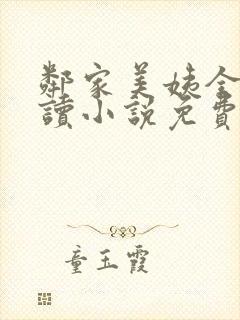 鄰家美姨全
讀小說免費
童玉霞